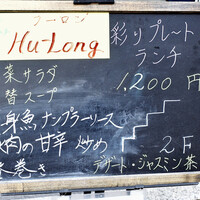 フーロン
Hu-Long
彩りプレート
ランチ
1,200円
菜サラダ
替スープ
身魚ナンプラーソース
肉の甘辛炒め
巻き
2F
デザート・ジャスミン茶